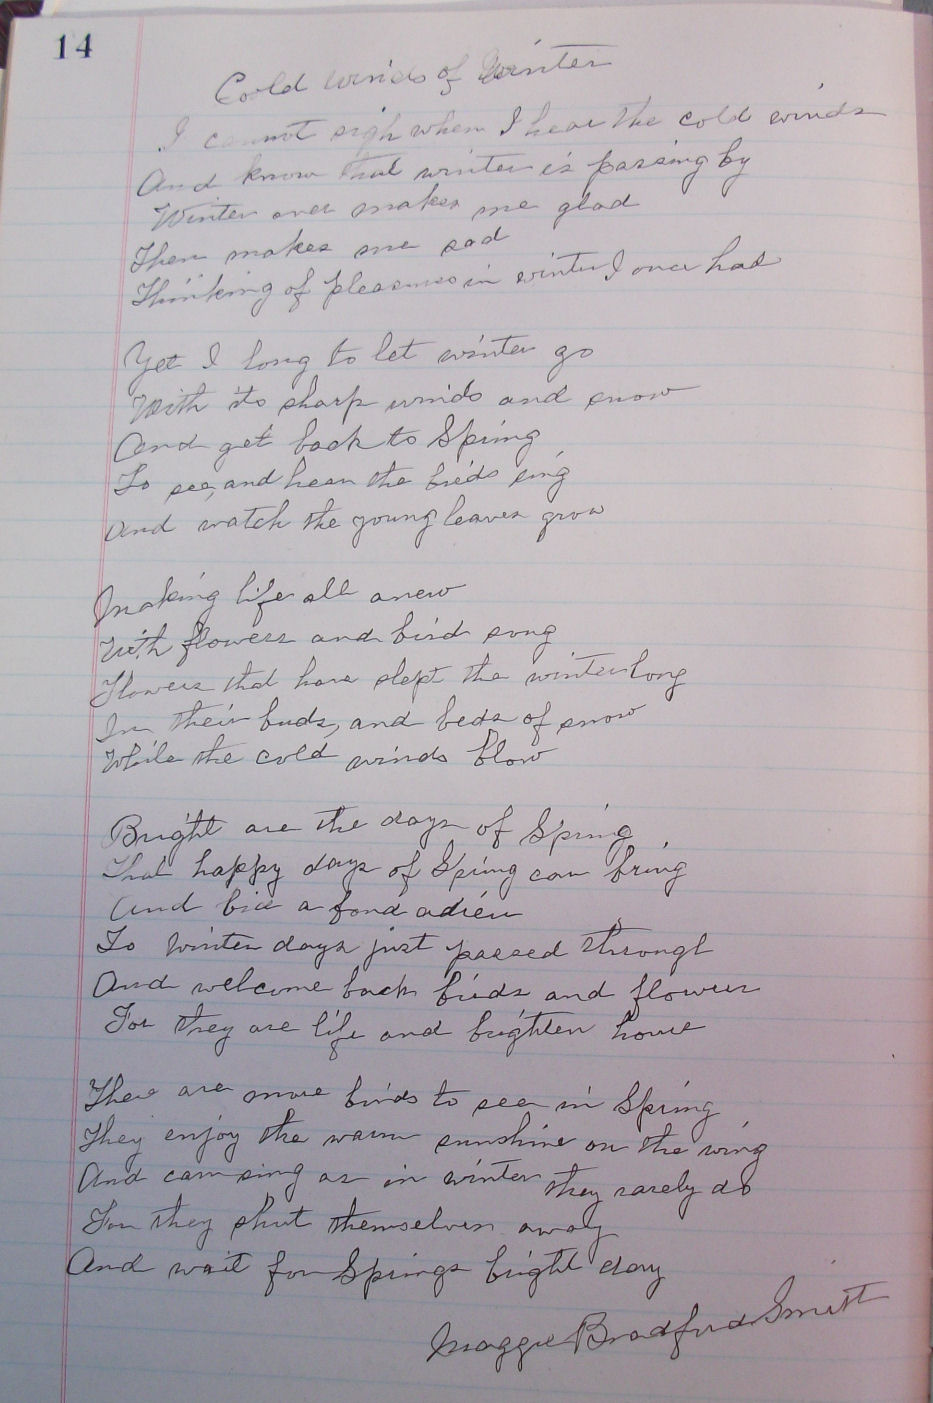 14
Cold winds of Winter
I cannot sigh when I hear the cold winds
And know that winter is passing by
Winter over makes me glad
Then makes me sad
Thinking of pleasures in winter I once had
Yet I long to let winter go
With its sharp winds and snow
And get back to Spring
To see, and hear the birds sing
And watch the young leaves grow
Making life all anew
With flowers and bird song
Flowers that have slept the winter long
In their buds, and beds of snow
While the cold winds blow
Bright are the days of Spring
That happy days of Spring can bring
And bid a fond adieu
To Winter days just passed through
And welcome back birds and flowers
For they are life and brighten home
There are more birds to see in Spring
They enjoy the warm sunshine on the wing
And can sing as in winter they rarely do
For they shut themselves away
And wait for Springs bright day
Maggie Bradford Smith